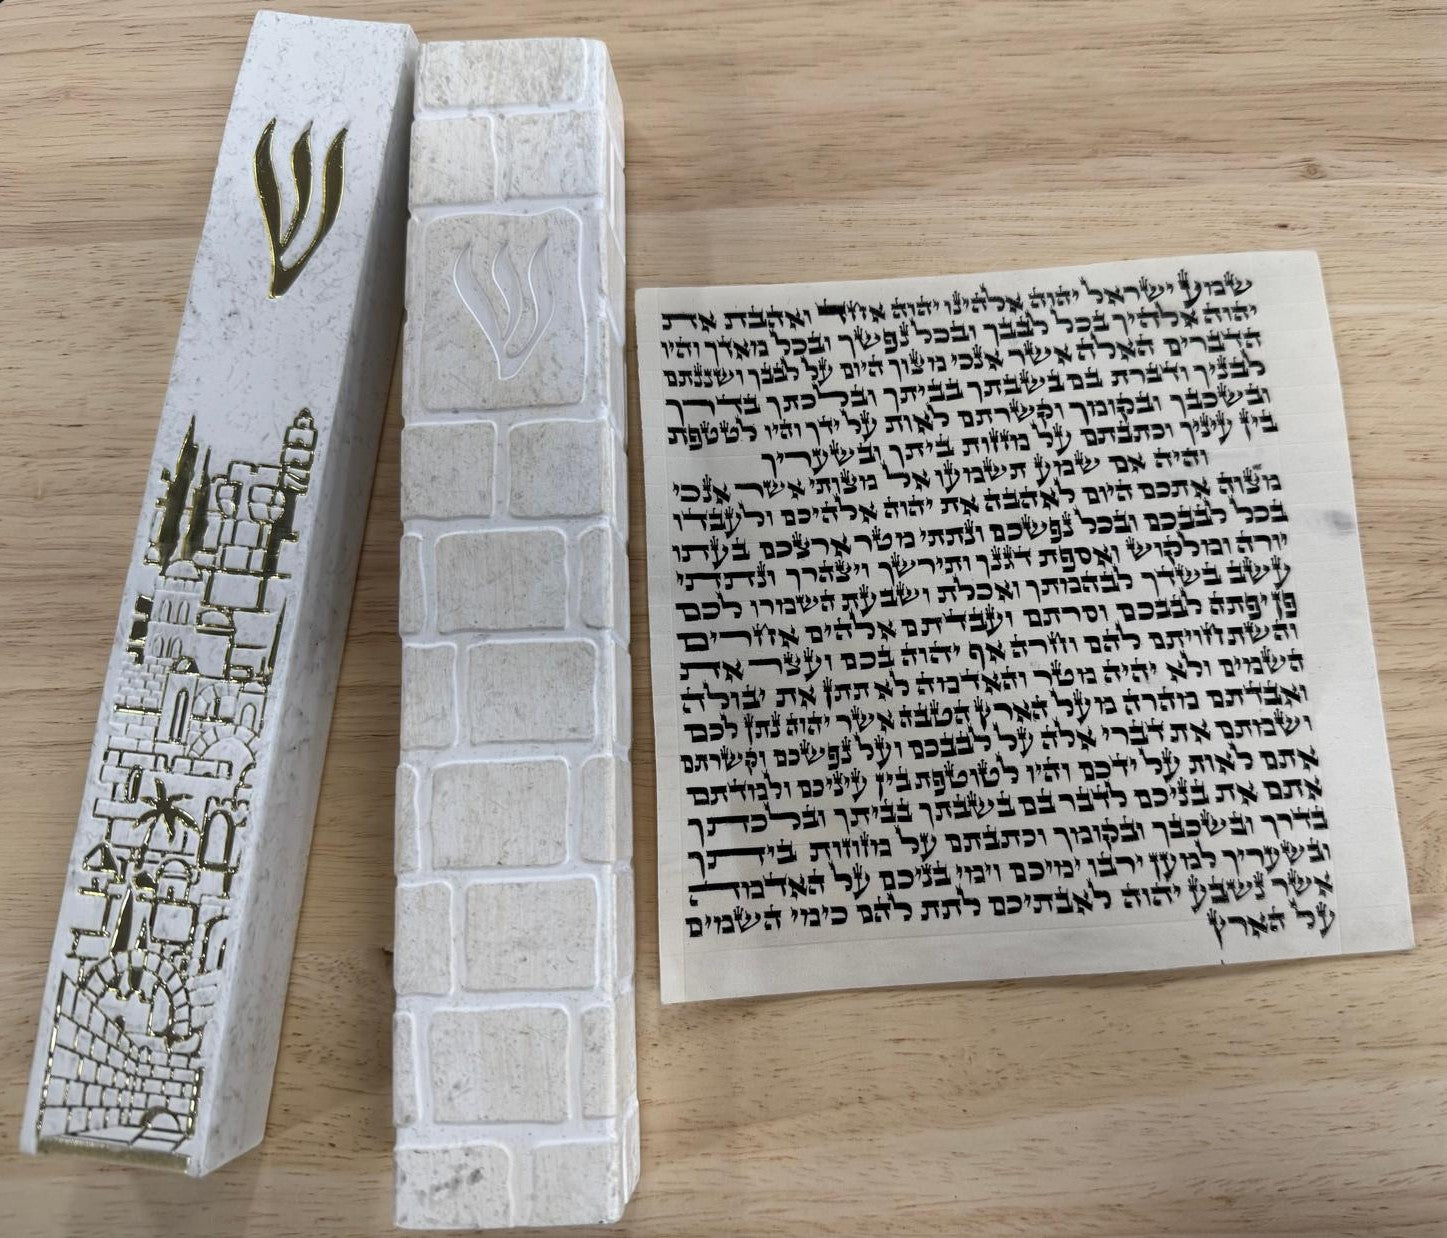 ש
ש
שמע ישראל יהוה אלהינו יהוה אחד ואהבת את
יהוה אלהיך בכל לבבך ובכל נפשך ובכל מאדך והיו
הדברים האלה אשר אנכי מצוך היום על לבבך ושננתם
לבניך ודברת בם בשבתך בביתך ובלכתך בדרך
ובשכבך ובקומך וקשרתם לאות על ידך והיו לטטפת
בין עיניך וכתבתם על מזזות ביתך ובשעריך
והיה אם שמע תשמעו אל מצותי אשר אנכי
מצוה אתכם היום לאהבה את יהוה אלהיכם ולעבדו
בכל לבבכם ובכל נפשכם ונתתי מטר ארצכם בעתו
יורה ומלקוש ואספת דגנך ותירשך ויצהרך ונתתי
עשב בשדך לבהמתך ואכלת ושבעת השמרו לכם
פן יפתה לבבכם וסרתם ועבדתם אלהים אחרים
והשתחויתם להם וחרה אף יהוה בכם ועצר את
השמים ולא יהיה מטר והאדמה לא תתן את יבולה
ואבדתם מהרה מעל הארץ הטבה אשר יהוה נתן לכם
ושמתם את דברי אלה על לבבכם ועל נפשכם וקשרתם
אתם לאות על ידכם והיו לטוטפת בין עיניכם ולמדתם
אתם את בניכם לדבר בם בשבתך בביתך ובלכתך
בדרך ובשכבך ובקומך וכתבתם על מזוזות ביתך
ובשעריך למען ירבו ימיכם וימי בניכם על האדמה
אשר נשבע יהוה לאבתיכם לתת להם כימי השמים
על הארץ